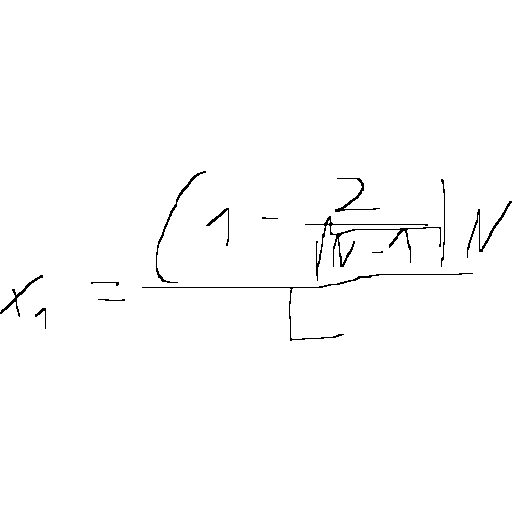 x_1 = \frac{(1 - \frac{2}{\sqrt{N - 1}}) N}{L}